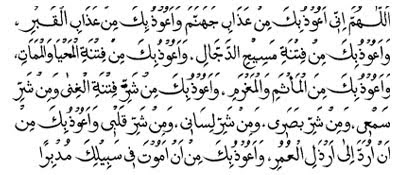 اَللّٰهُمَّ اِنِّى اَعُوذُ بِكَ مِنْ عَذَابِ جَهَنَّمَ وَاَعُوذُ بِكَ مِنْ عَذَابِ الْقَبْرِ،
وَاَعُوذُ بِكَ مِنْ فِتْنَةِ مَسِيحِ الدَّجَّالِ. وَاَعُوذُ بِكَ مِنْ فِتْنَةِ الْمَحْيَا وَالْمَمَاتِ.
وَاَعُوذُ بِكَ مِنَ الْمَأْثَمِ وَالْمَغْرَمِ. وَاَعُوذُ بِكَ مِنْ شَرِّ فِتْنَةِ الْغِنٰى وَمِنْ شَرِّ
سَمْعِى. وَمِنْ شَرِّ بَصَرِى. وَمِنْ شَرِّ لِسَانِى. وَمِنْ شَرِّ قَلْبِى وَاَعُوذُ بِكَ مِنْ
اَنْ اُرَدَّ اِلٰى اَرْذَلِ الْعُمُرِ. وَاَعُوذُ بِكَ مِنْ اَنْ اَمُوتَ فِى سَبِيلِكَ مُدْبِرًا